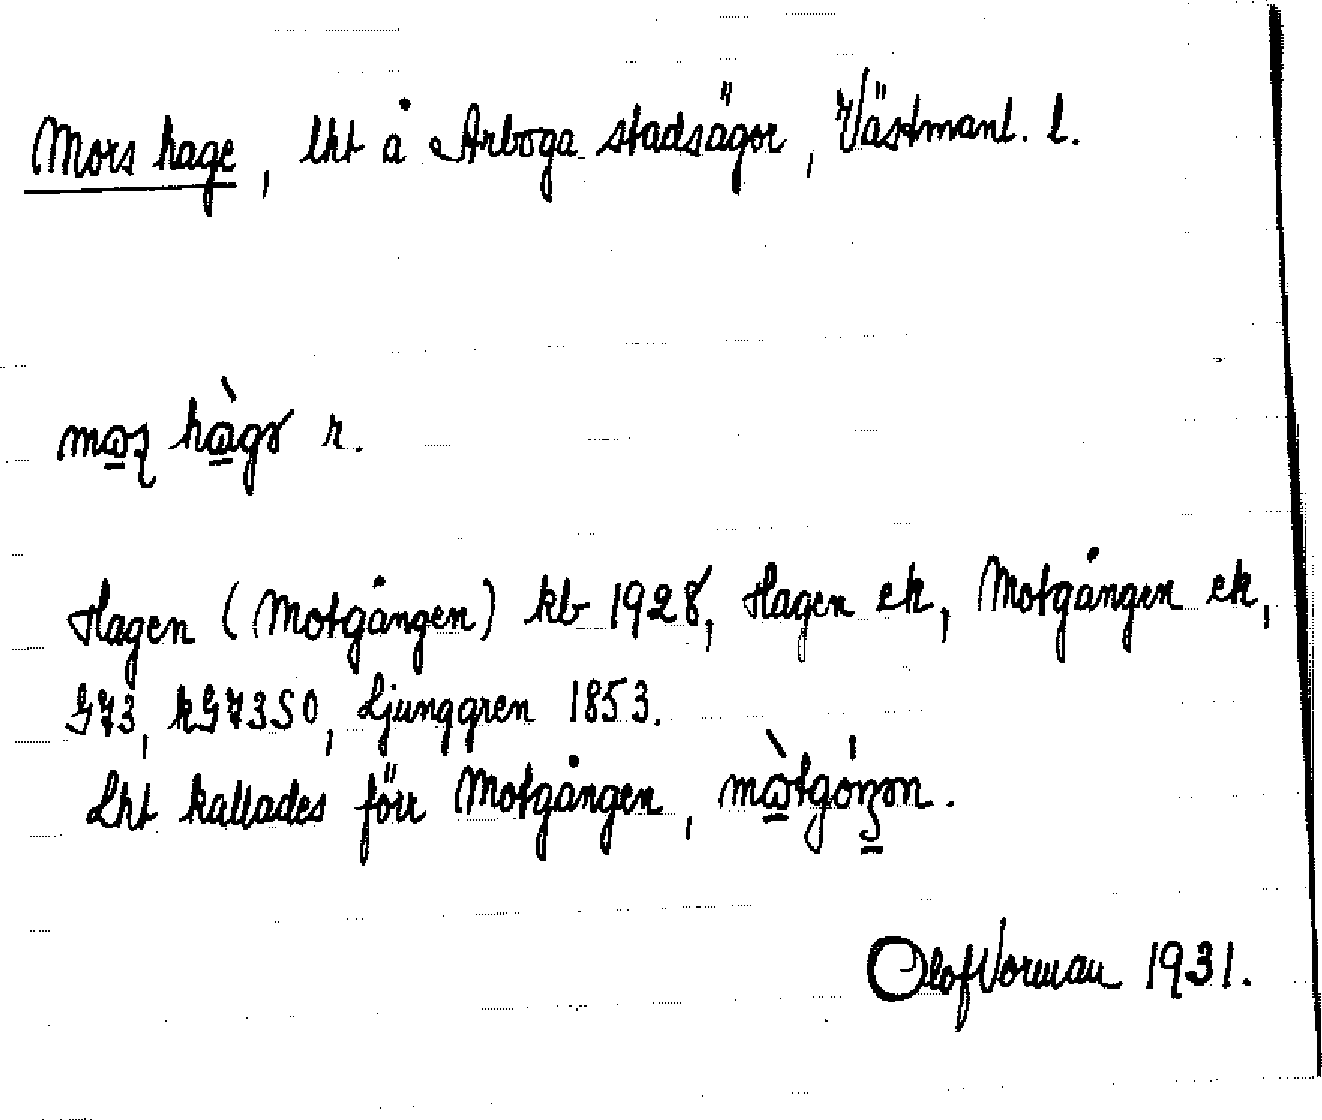 Mors hage, lht å Arboga stadsägor, Västmanl. l.
r.
Hagen (Motgången) kb 1928, Hagen ek, Motgången ek,
G73, kG73SO, Ljunggren 1853.
Lht kallades förr Motgången,
Olof Vorman 1931.